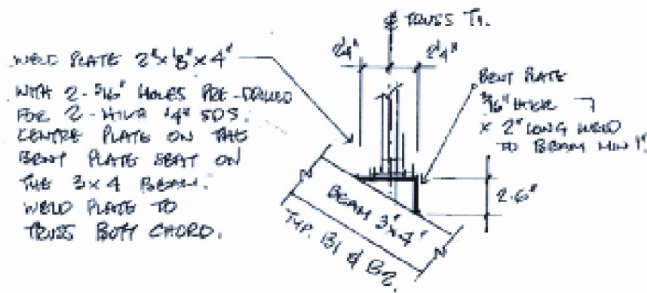 ℄ TRUSS T1.
WELD PLATE 2"x 1/8" x 4"
WITH 2- 5/16" HOLES PRE-DRILLED
FOR 2- 1/4" SDS.
CENTRE PLATE ON THE
BENT PLATE SEAT ON
THE 3x4 BEAM.
WELD PLATE TO
TRUSS BOTT CHORD.
2 1/4"
2 1/4"
BENT PLATE
3/16" THICK
x 2" LONG WELD
TO BEAM MIN 1"
2.6"
BEAM 3"x4"
TYP. B1 & B2.